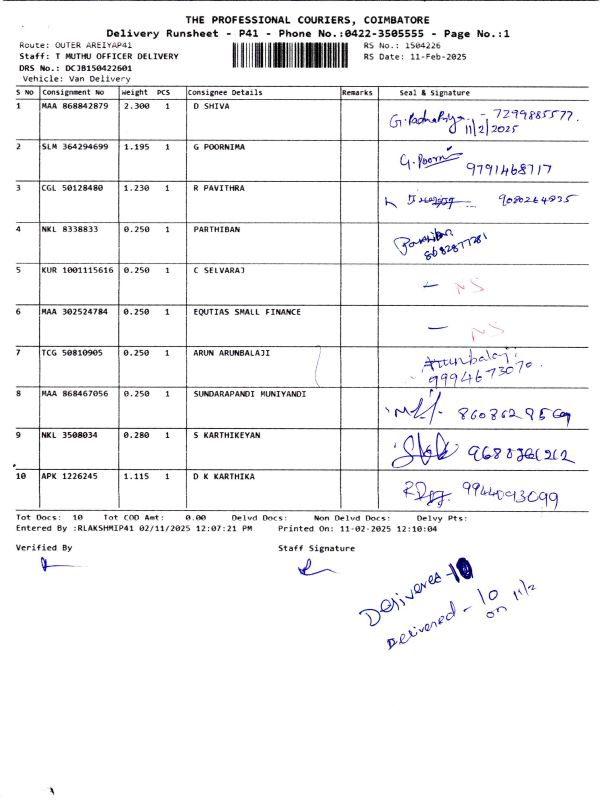 THE PROFESSIONAL COURIERS, COIMBATORE
Delivery Runsheet - P41 - Phone No.:0422-3505555 - Page No.:1
Route: OUTER AREIYAP41 RS No.: 1504226
Staff: T MUTHU OFFICER DELIVERY RS Date: 11-Feb-2025
DRS No.: DCJB150422601
Vehicle: Van Delivery
S No Consignment No Weight PCS Consignee Details Remarks Seal & Signature
1 MAA 868842879 2.300 1 D SHIVA - 7299885577.
11/2/2025
2 SLM 364294699 1.195 1 G POORNIMA G. Poorni
9791468717
3 CGL 50128480 1.230 1 R PAVITHRA
4 NKL 8338833 0.250 1 PARTHIBAN Parthiban
8682877281
5 KUR 1001115616 0.250 1 C SELVARAJ - NS
6 MAA 302524784 0.250 1 EQUTIAS SMALL FINANCE - NS
7 TCG 50810905 0.250 1 ARUN ARUNBALAJI Arunbalaji
9994673070.
8 MAA 868467056 0.250 1 SUNDARAPANDI MUNIYANDI
9 NKL 3508034 0.280 1 S KARTHIKEYAN
10 APK 1226245 1.115 1 D K KARTHIKA 9944093099
Tot Docs: 10 Tot COD Amt: 0.00 Delvd Docs: Non Delvd Docs: Delvy Pts:
Entered By :RLAKSHMIP41 02/11/2025 12:07:21 PM Printed On: 11-02-2025 12:10:04
Verified By Staff Signature
Delivered - 10
Delivered - 10
on 11/2